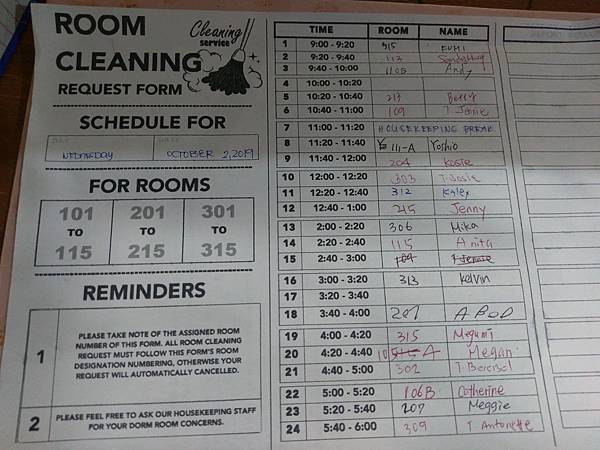 ROOM
CLEANING
REQUEST FORM
Cleaning
service
SCHEDULE FOR
DAY DATE
WEDNESDAY OCTOBER 2, 2019
FOR ROOMS
101 201 301
TO TO TO
115 215 315
REMINDERS
1 PLEASE TAKE NOTE OF THE ASSIGNED ROOM
NUMBER OF THIS FORM. ALL ROOM CLEANING
REQUEST MUST FOLLOW THIS FORM'S ROOM
DESIGNATION NUMBERING, OTHERWISE YOUR
REQUEST WILL AUTOMATICALLY CANCELLED.
2 PLEASE FEEL FREE TO ASK OUR HOUSEKEEPING STAFF
FOR YOUR DORM ROOM CONCERNS.
TIME ROOM NAME
1 9:00 - 9:20 315 FUMI
2 9:20 - 9:40 113
3 9:40 - 10:00 1105 Andy
4 10:00 - 10:20
5 10:20 - 10:40 213 Betty
6 10:40 - 11:00 109 T. Jennie
7 11:00 - 11:20 HOUSEKEEPING BREAK
8 11:20 - 11:40 111-A Yoshio
9 11:40 - 12:00 204 Rosie
10 12:00 - 12:20 303 T. Josie
11 12:20 - 12:40 312 Kaley
12 12:40 - 1:00 215 Jenny
13 2:00 - 2:20 306 Mika
14 2:20 - 2:40 115 Anita
15 2:40 - 3:00 109
16 3:00 - 3:20 313 Kelvin
17 3:20 - 3:40
18 3:40 - 4:00 207 ABOD
19 4:00 - 4:20 315 Megumi
20 4:20 - 4:40 A Megan
21 4:40 - 5:00 302
22 5:00 - 5:20 106B Catherine
23 5:20 - 5:40 207 Meggie
24 5:40 - 6:00 309 T. Antonette